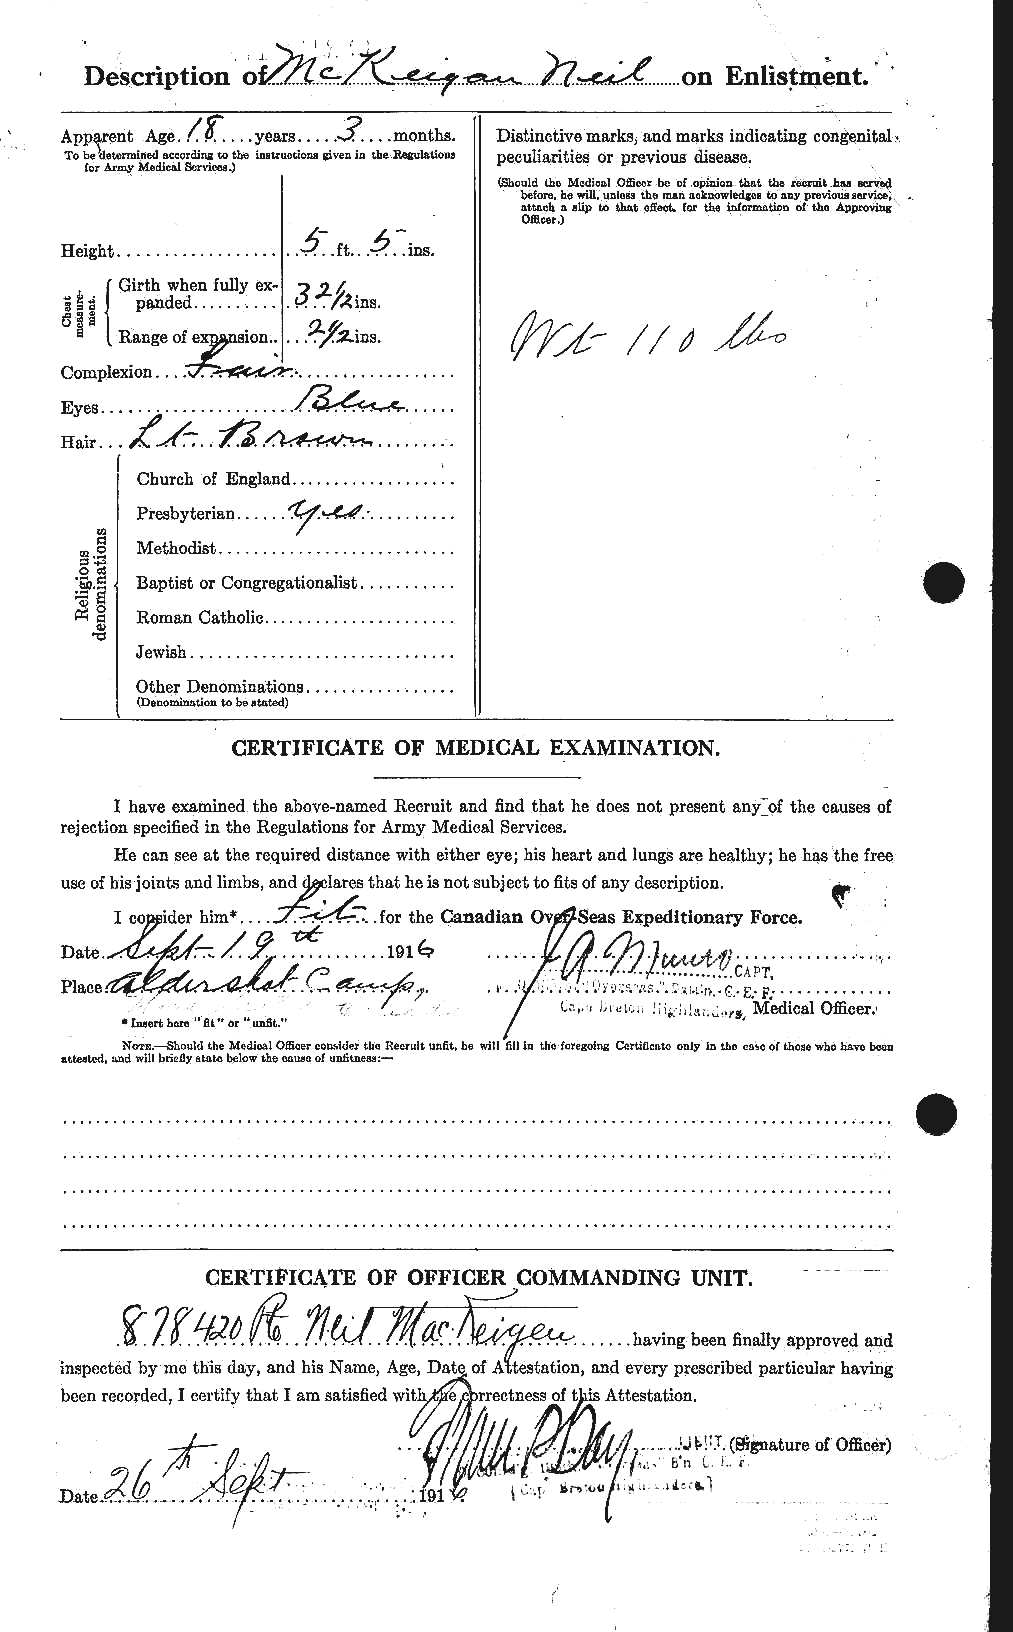 Description of McKeigan Neil on Enlistment.
Apparent Age. 18 ....years.... 3 ....months.
To be determined according to the instructions given in the Regulations
for Army Medical Services.)
Height.................. 5 ft. 5 ins.
Chest measurement.
Girth when fully ex-
panded.......... 32 1/2 ins.
Range of expansion.. 2 1/2 ins.
Complexion.... Fair
Eyes.................... Blue
Hair... Lt Brown
Religious denominations
Church of England
Presbyterian...... Yes
Methodist
Baptist or Congregationalist
Roman Catholic
Jewish
Other Denominations
(Denomination to be stated)
Distinctive marks, and marks indicating congenital
peculiarities or previous disease.
(Should the Medical Officer be of opinion that the recruit has served
before, he will, unless the man acknowledges to any previous service,
attach a slip to that effect, for the information of the Approving
Officer.)
Wt 110 lbs
CERTIFICATE OF MEDICAL EXAMINATION.
I have examined the above-named Recruit and find that he does not present any of the causes of
rejection specified in the Regulations for Army Medical Services.
He can see at the required distance with either eye; his heart and lungs are healthy; he has the free
use of his joints and limbs, and declares that he is not subject to fits of any description.
I consider him*.... Fit ...for the Canadian Over-Seas Expeditionary Force.
Date. Sept 19th 1916
J A Munro CAPT.
Place Aldershot Camp,
Overseas Battn. C. E. F.
Cape Breton Highlanders, Medical Officer.
* Insert here "fit" or "unfit."
NOTE.—Should the Medical Officer consider the Recruit unfit, he will fill in the foregoing Certificate only in the case of those who have been
attested, and will briefly state below the cause of unfitness:—
CERTIFICATE OF OFFICER COMMANDING UNIT.
878420 Pte Neil MacKeigen ......having been finally approved and
inspected by me this day, and his Name, Age, Date of Attestation, and every prescribed particular having
been recorded, I certify that I am satisfied with the correctness of this Attestation.
P Day, LIEUT. (Signature of Officer)
B'n C. E. F.
(Cape Breton Highlanders)
Date 26th Sept 1916